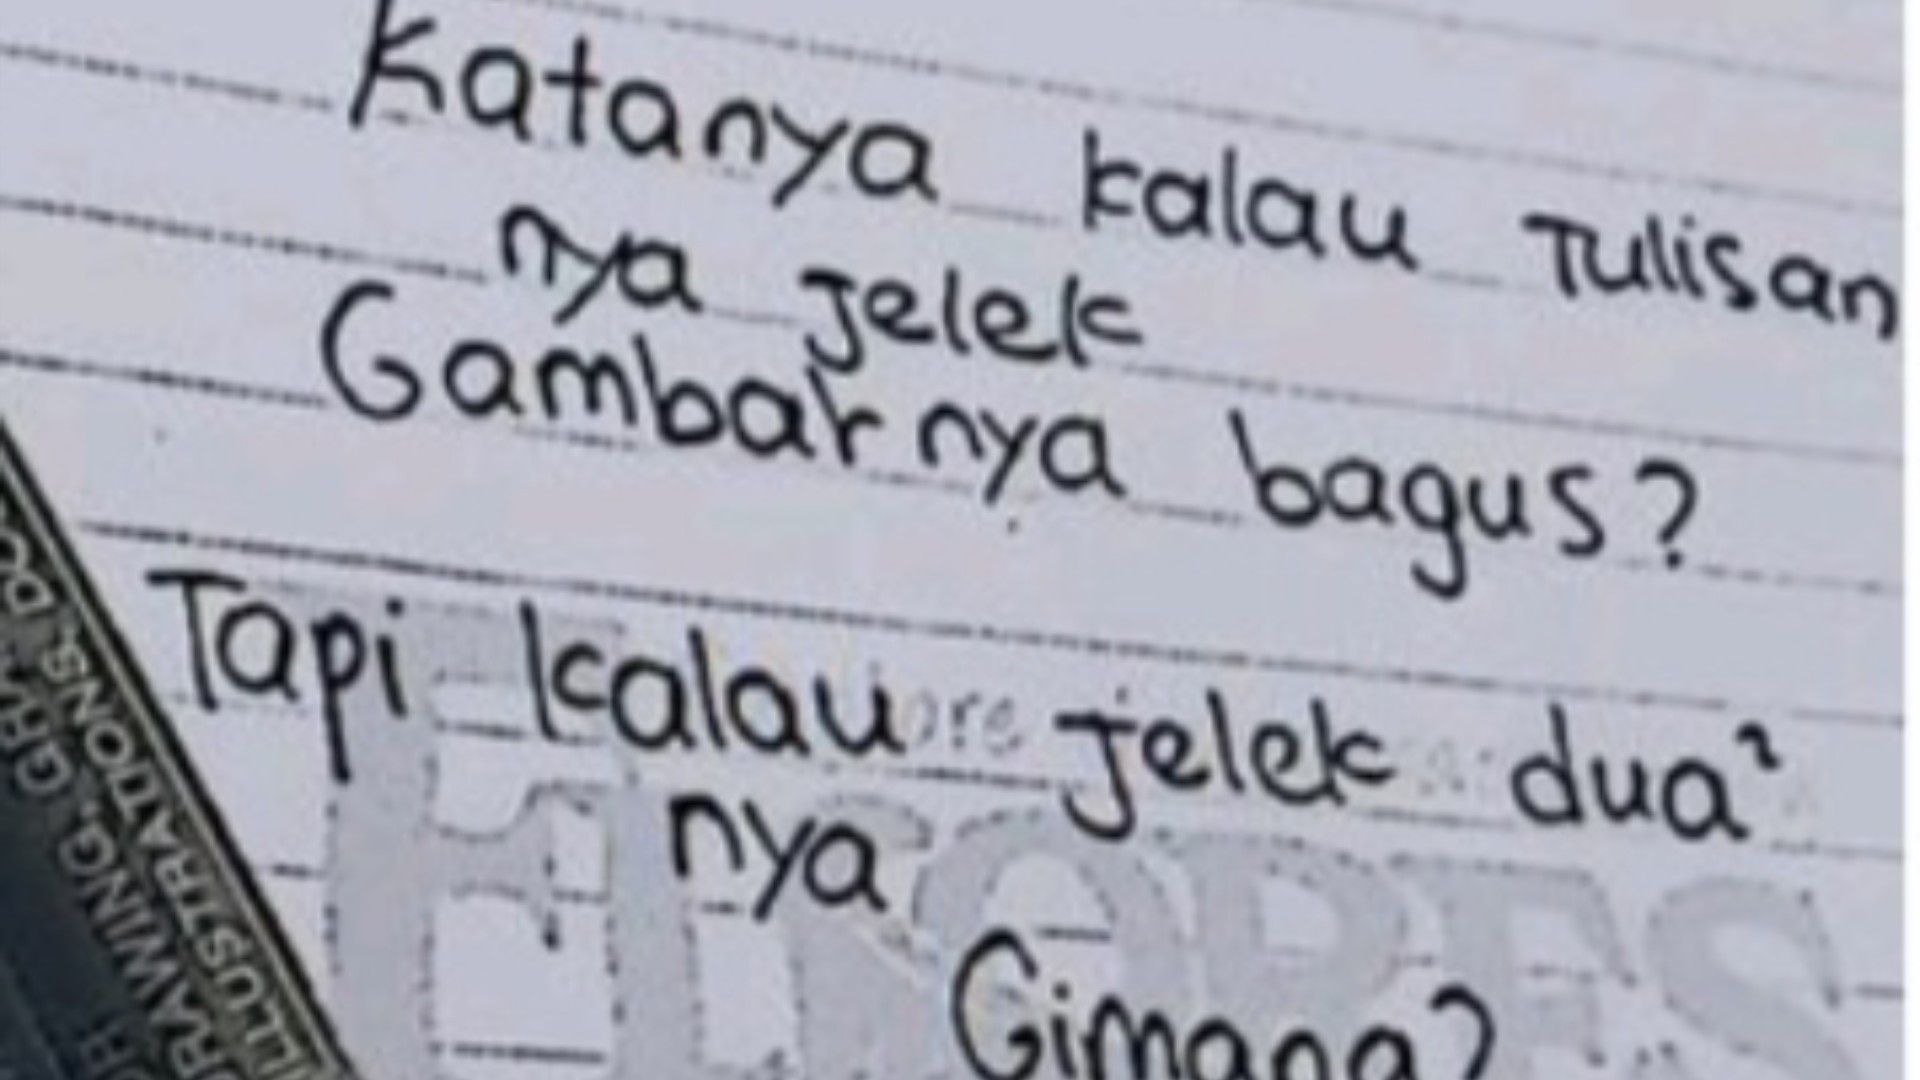 Katanya kalau Tulisan
nya jelek
Gambarnya bagus?
Tapi kalau jelek dua²
nya
Gimana?
RAWING, GRA
LUSTRATIONS, DO